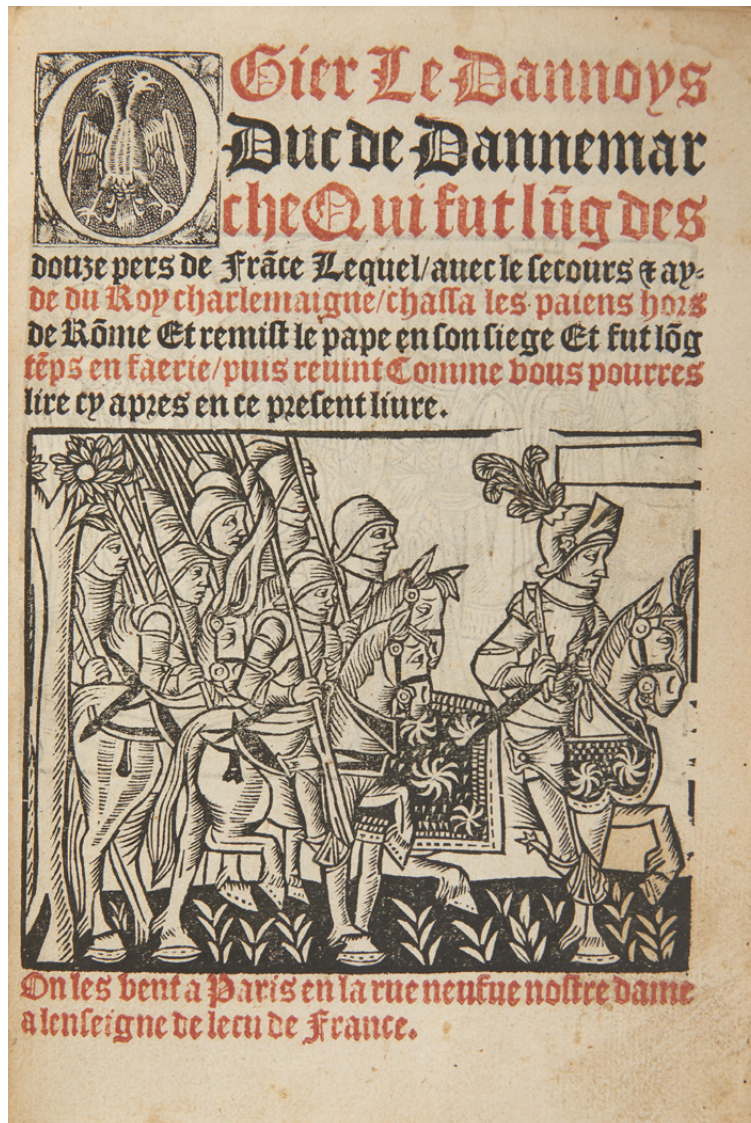 OGier Le Dannoys
Duc de Dannemar
che Qui fut lũg des
douze pers de Frãce Lequel/auec le secours ⁊ ay⸗
de du Roy charlemaigne/chassa les paiens hors
de Rõme Et remist le pape en son siege Et fut lõg
tẽps en faerie/puis reuint Comme vous pourres
lire cy apres en ce present liure.
On les vent a Paris en la rue neufue nostre dame
a lenseigne de lecu de France.